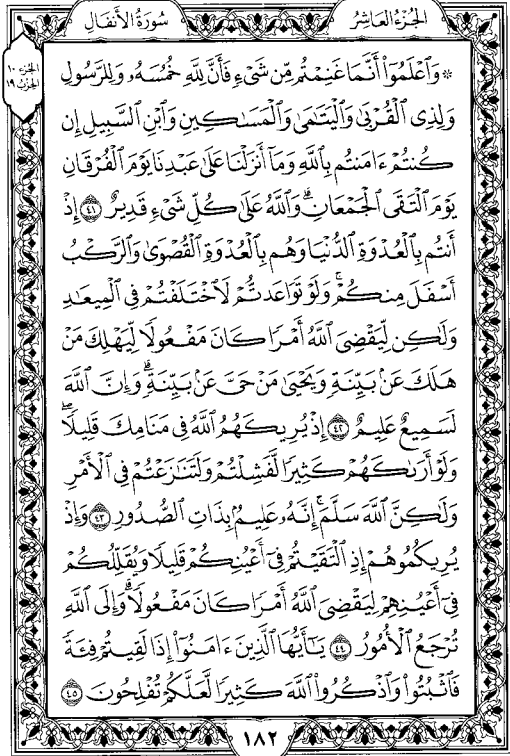 الجزء العاشر
سورة الأنفال
الجزء ١٠
الحزب ١٩
۞ وَٱعْلَمُوٓا۟ أَنَّمَا غَنِمْتُم مِّن شَىْءٍ فَأَنَّ لِلَّهِ خُمُسَهُۥ وَلِلرَّسُولِ
وَلِذِى ٱلْقُرْبَىٰ وَٱلْيَتَـٰمَىٰ وَٱلْمَسَـٰكِينِ وَٱبْنِ ٱلسَّبِيلِ إِن
كُنتُمْ ءَامَنتُم بِٱللَّهِ وَمَآ أَنزَلْنَا عَلَىٰ عَبْدِنَا يَوْمَ ٱلْفُرْقَانِ
يَوْمَ ٱلْتَقَى ٱلْجَمْعَانِ ۗ وَٱللَّهُ عَلَىٰ كُلِّ شَىْءٍ قَدِيرٌ ٤١ إِذْ
أَنتُم بِٱلْعُدْوَةِ ٱلدُّنْيَا وَهُم بِٱلْعُدْوَةِ ٱلْقُصْوَىٰ وَٱلرَّكْبُ
أَسْفَلَ مِنكُمْ ۚ وَلَوْ تَوَاعَدتُّمْ لَٱخْتَلَفْتُمْ فِى ٱلْمِيعَـٰدِ
وَلَـٰكِن لِّيَقْضِىَ ٱللَّهُ أَمْرًا كَانَ مَفْعُولًا لِّيَهْلِكَ مَنْ
هَلَكَ عَنۢ بَيِّنَةٍ وَيَحْيَىٰ مَنْ حَىَّ عَنۢ بَيِّنَةٍ ۗ وَإِنَّ ٱللَّهَ
لَسَمِيعٌ عَلِيمٌ ٤٢ إِذْ يُرِيكَهُمُ ٱللَّهُ فِى مَنَامِكَ قَلِيلًا ۖ
وَلَوْ أَرَىٰكَهُمْ كَثِيرًا لَّفَشِلْتُمْ وَلَتَنَـٰزَعْتُمْ فِى ٱلْأَمْرِ
وَلَـٰكِنَّ ٱللَّهَ سَلَّمَ ۗ إِنَّهُۥ عَلِيمٌۢ بِذَاتِ ٱلصُّدُورِ ٤٣ وَإِذْ
يُرِيكُمُوهُمْ إِذِ ٱلْتَقَيْتُمْ فِىٓ أَعْيُنِكُمْ قَلِيلًا وَيُقَلِّلُكُمْ
فِىٓ أَعْيُنِهِمْ لِيَقْضِىَ ٱللَّهُ أَمْرًا كَانَ مَفْعُولًا ۗ وَإِلَى ٱللَّهِ
تُرْجَعُ ٱلْأُمُورُ ٤٤ يَـٰٓأَيُّهَا ٱلَّذِينَ ءَامَنُوٓا۟ إِذَا لَقِيتُمْ فِئَةً
فَٱثْبُتُوا۟ وَٱذْكُرُوا۟ ٱللَّهَ كَثِيرًا لَّعَلَّكُمْ تُفْلِحُونَ ٤٥
١٨٢